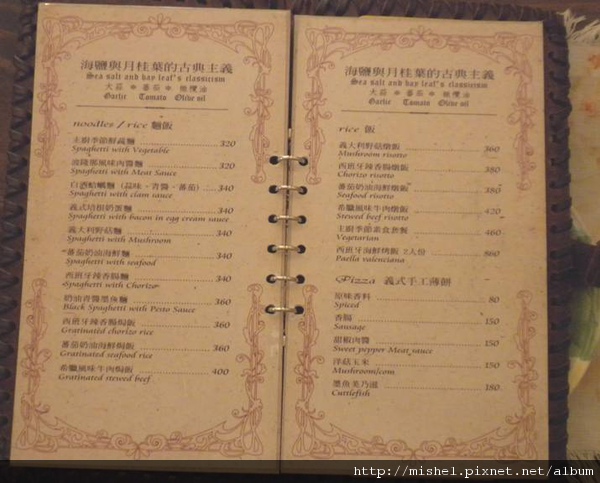 海鹽與月桂葉的古典主義
Sea salt and bay leaf's classicism
大蒜 ❉ 蕃茄 ❉ 橄欖油
Garlic Tomato Olive oil
noodles / rice 麵飯
主廚季節鮮蔬麵 320
Spaghetti with Vegetable
波隆那風味肉醬麵 320
Spaghetti with Meat Sauce
白酒蛤蠣麵（蒜味、青醬、蕃茄） 340
Spaghetti with clam sauce
義式培根奶蛋麵 340
Spaghetti with bacon in egg cream sauce
義大利野菇麵 340
Spaghetti with Mushroom
蕃茄奶油海鮮麵 340
Spaghetti with seafood
西班牙辣香腸麵 340
Spaghetti with Chorizo
奶油青醬墨魚麵 360
Black Spaghetti with Pesto Sauce
西班牙辣香腸焗飯 360
Gratinated chorizo rice
蕃茄奶油海鮮焗飯 360
Gratinated seafood rice
希臘風味牛肉焗飯 400
Gratinated steweed beef
海鹽與月桂葉的古典主義
Sea salt and bay leaf's classicism
大蒜 ❉ 蕃茄 ❉ 橄欖油
Garlic Tomato Olive oil
rice 飯
義大利野菇燉飯 360
Mushroom risotto
西班牙辣香腸燉飯 380
Chorizo risotto
蕃茄奶油海鮮燉飯 380
Seafood risotto
希臘風味牛肉燉飯 420
Stewed beef risotto
主廚季節素食套餐 460
Vegetarian
西班牙海鮮烤飯 2人份 860
Paella valenciana
Pizza 義式手工薄餅
原味香料 80
Spiced
香腸 150
Sausage
甜椒肉醬 150
Sweet pepper Meat sauce
洋菇玉米 150
Mushroom/corn
墨魚美乃滋 180
Cuttlefish
http://mishel.pixnet.net/album